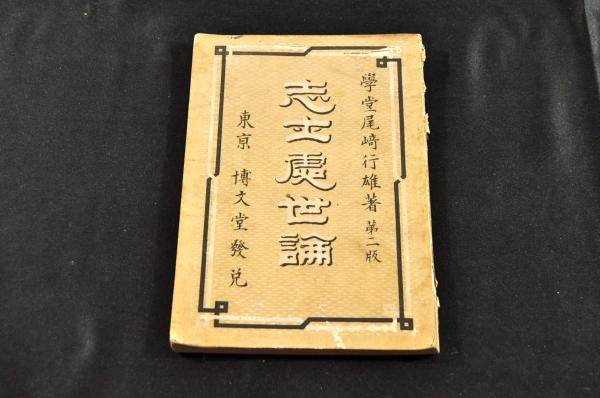 學堂尾﨑行雄著 第二版
志士處世論
東京 博文堂發兌